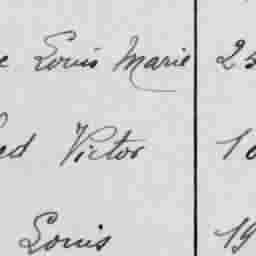 Louis Marie 25
Victor 10
Louis 19